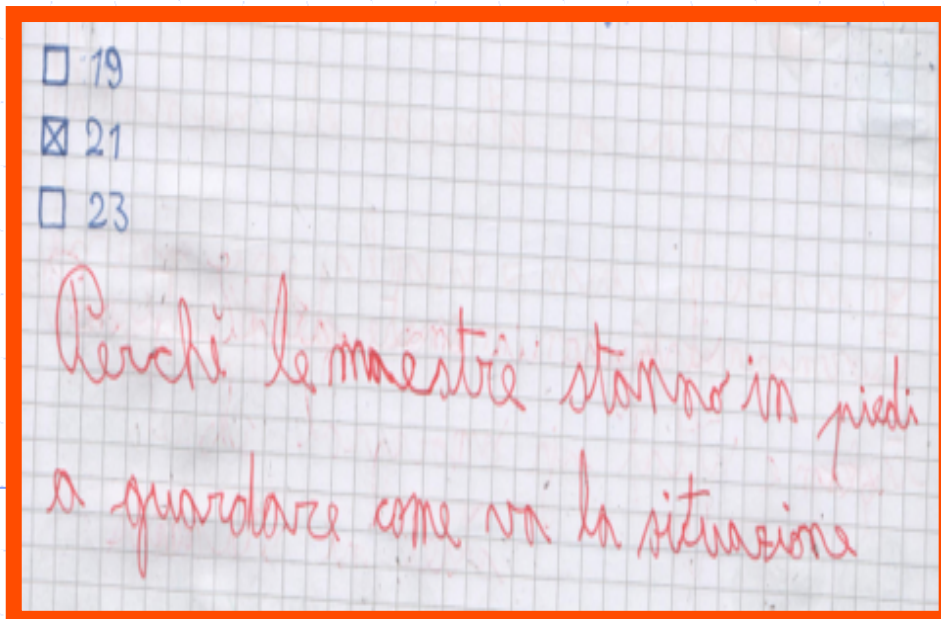 ☐ 19
☒ 21
☐ 23
Perché le maestre stanno in piedi
a guardare come va la situazione